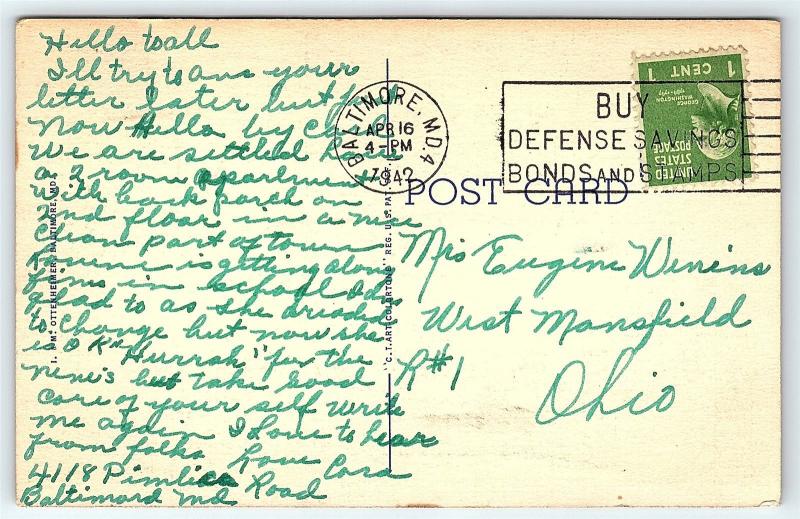 Hello to all
I'll try to ans your
letter later but for
now Hello by card
We are settled here
a 2 room apartment
with back porch on
2nd floor in a nice
clean part of town
is getting along
fine in school I das
glad to as she dreaded
to change but now she
is O K "Hurrah" for the
nene's but take good
care of your self write
me again I love to hear
from folks Love Cora
4118 Pimlico Road
Baltimord Md
I. & M. OTTENHEIMER, BALTIMORE, MD.
"C.T. ART-COLORTONE" REG. U.S. PAT. OFF.
BALTIMORE, MD. 4
APR 16
4-PM
1942
BUY
DEFENSE SAVINGS
BONDS AND STAMPS
1 CENT 1
GEORGE WASHINGTON
1789-1797
UNITED STATES POSTAGE
POST CARD
Mrs Eugene Winins
West Mansfield
R#1
Ohio